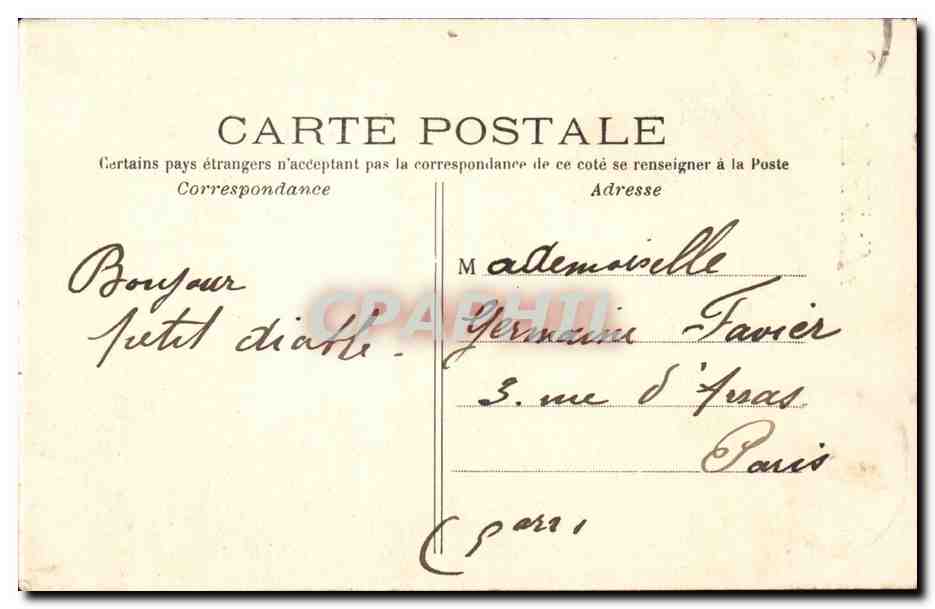 CARTE POSTALE
Certains pays étrangers n'acceptant pas la correspondance de ce coté se renseigner à la Poste
Correspondance
Adresse
Bonjour
petit diable.
Mademoiselle
Germaine Favier
3. rue d'Arras
Paris
CPARHTI